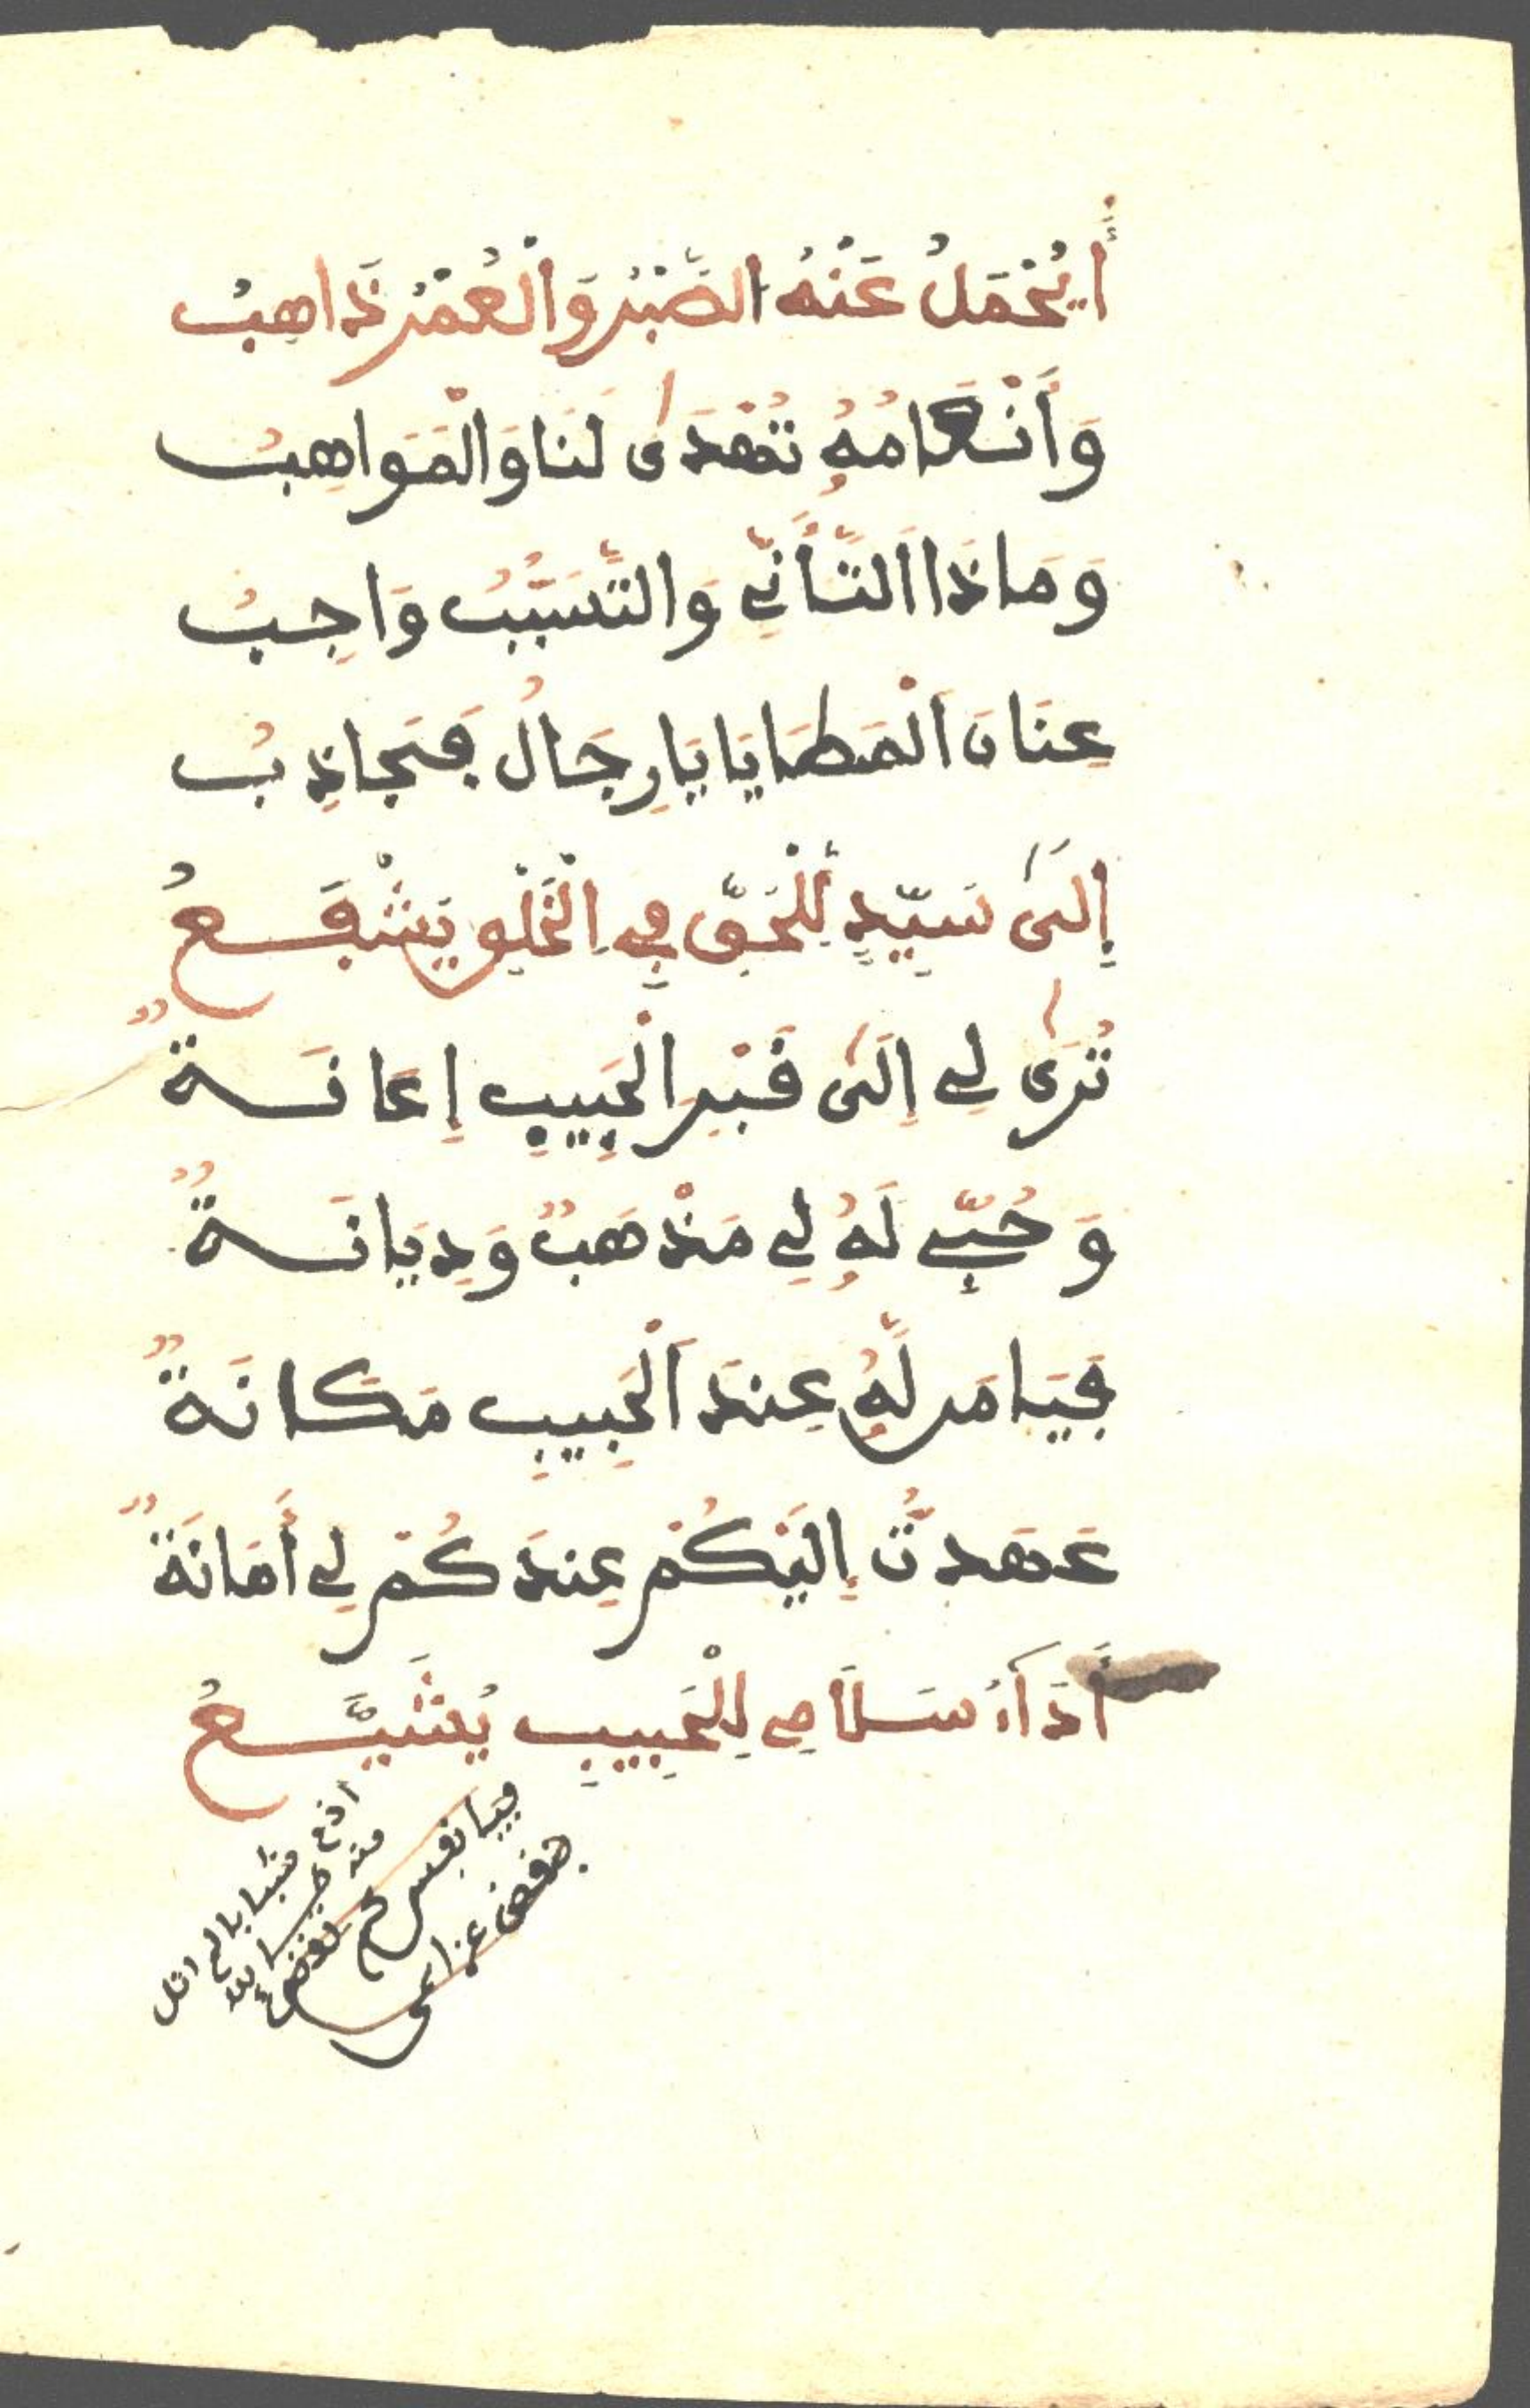 أَيُحْمَلُ عَنْهُ الصَّبْرُ وَالْعُمْرُ ذَاهِبُ
وَأَنْعَامُهُ تُهْدَى لَنَا وَالْمَوَاهِبُ
وَمَاذَا التَّأَنِّي وَالتَّسَبُّبُ وَاجِبُ
عِنَانَ الْمَطَايَا يَا رِجَالُ فَجَاذِبُ
إِلَى سَيِّدٍ لِلْحَقِّ فِي الْخَلْقِ يَشْفَعُ
تُرَى لِي إِلَى قَبْرِ الْحَبِيبِ إِعَانَةٌ
وَحُبِّي لَهُ لِي مَذْهَبٌ وَدِيَانَةٌ
فَيَا مَن لَّهُ عِندَ الْحَبِيبِ مَكَانَةٌ
عَهَدتُّ إِلَيْكُمْ عِندَكُمْ لِي أَمَانَةٌ
أَدَاءُ سَلَامِي لِلْحَبِيبِ يُشَيَّعُ
فيا نفس